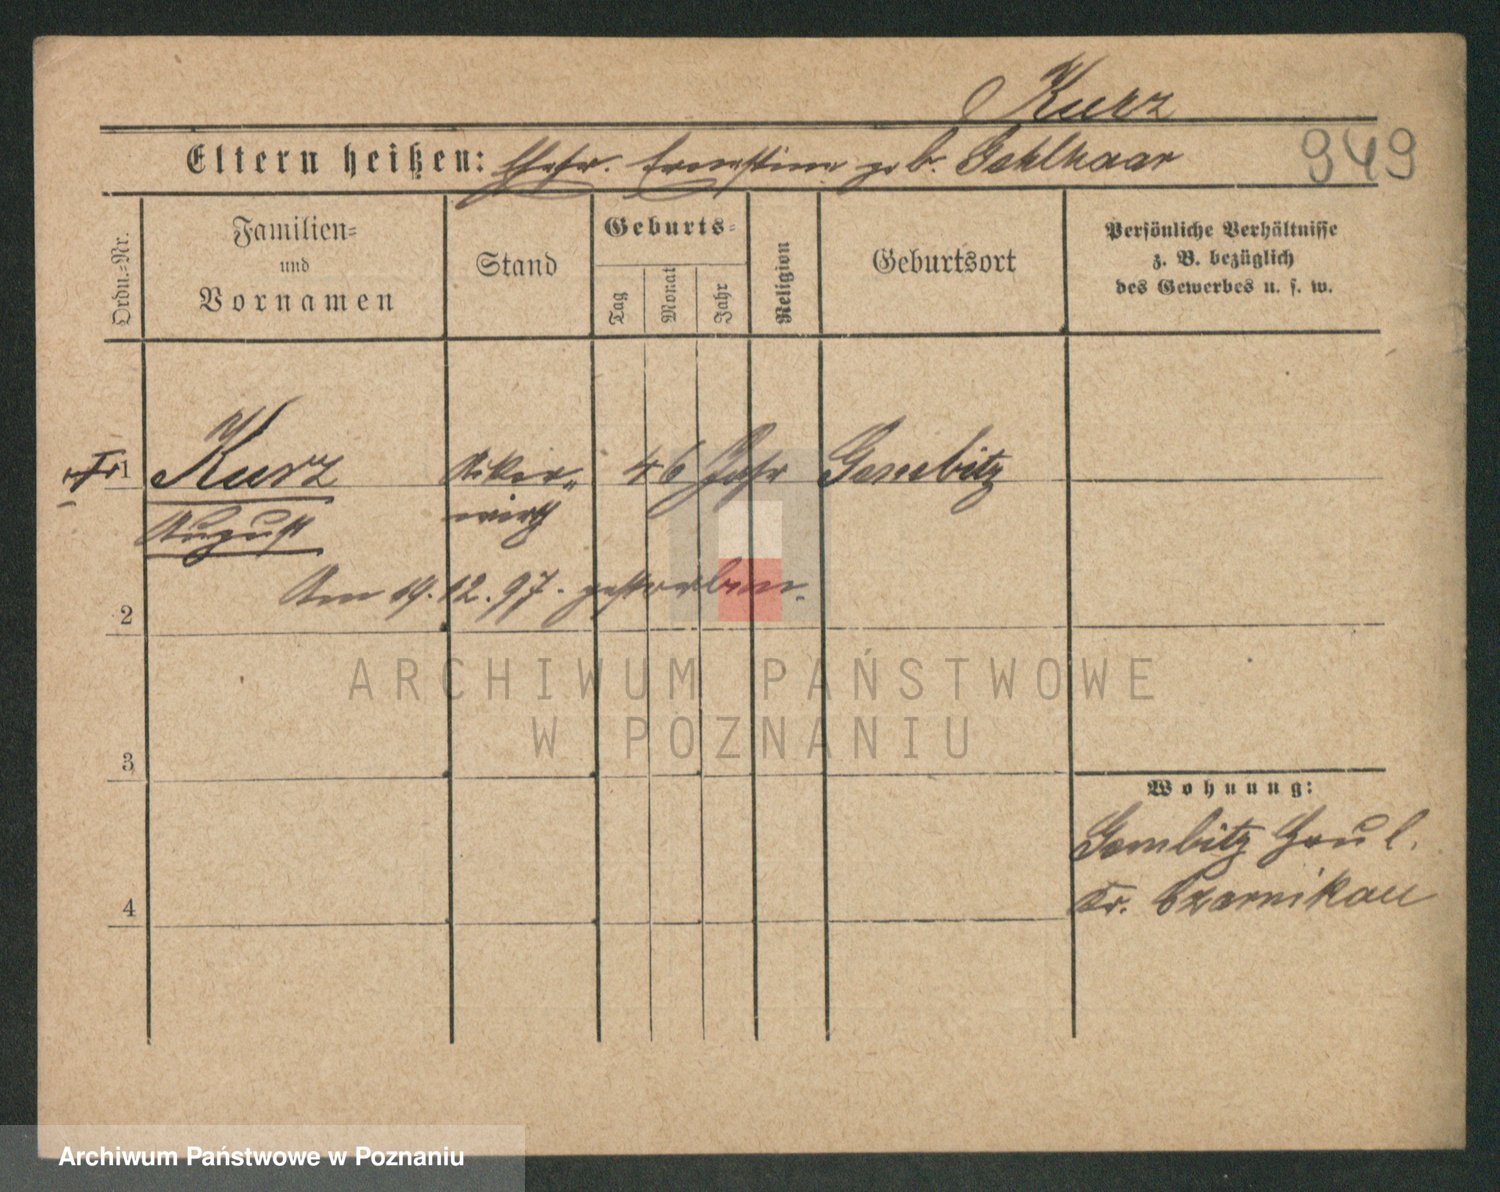 Kurz
Eltern heißen: Ehefr. Ernestine geb. Gehlhaar
949
Ordn.=Nr.
Familien=
und
Vornamen
Stand
Geburts=
Tag
Monat
Jahr
Religion
Geburtsort
Persönliche Verhältnisse
z. B. bezüglich
des Gewerbes u. s. w.
1 Kurz Acker= 46 Jahr Gembitz
August wirth
Am 19.12.97. gestorben.
2
ARCHIWUM PAŃSTWOWE
W POZNANIU
3
Wohnung:
Gembitz Haul.
Kr. Czarnikau
4
Archiwum Państwowe w Poznaniu